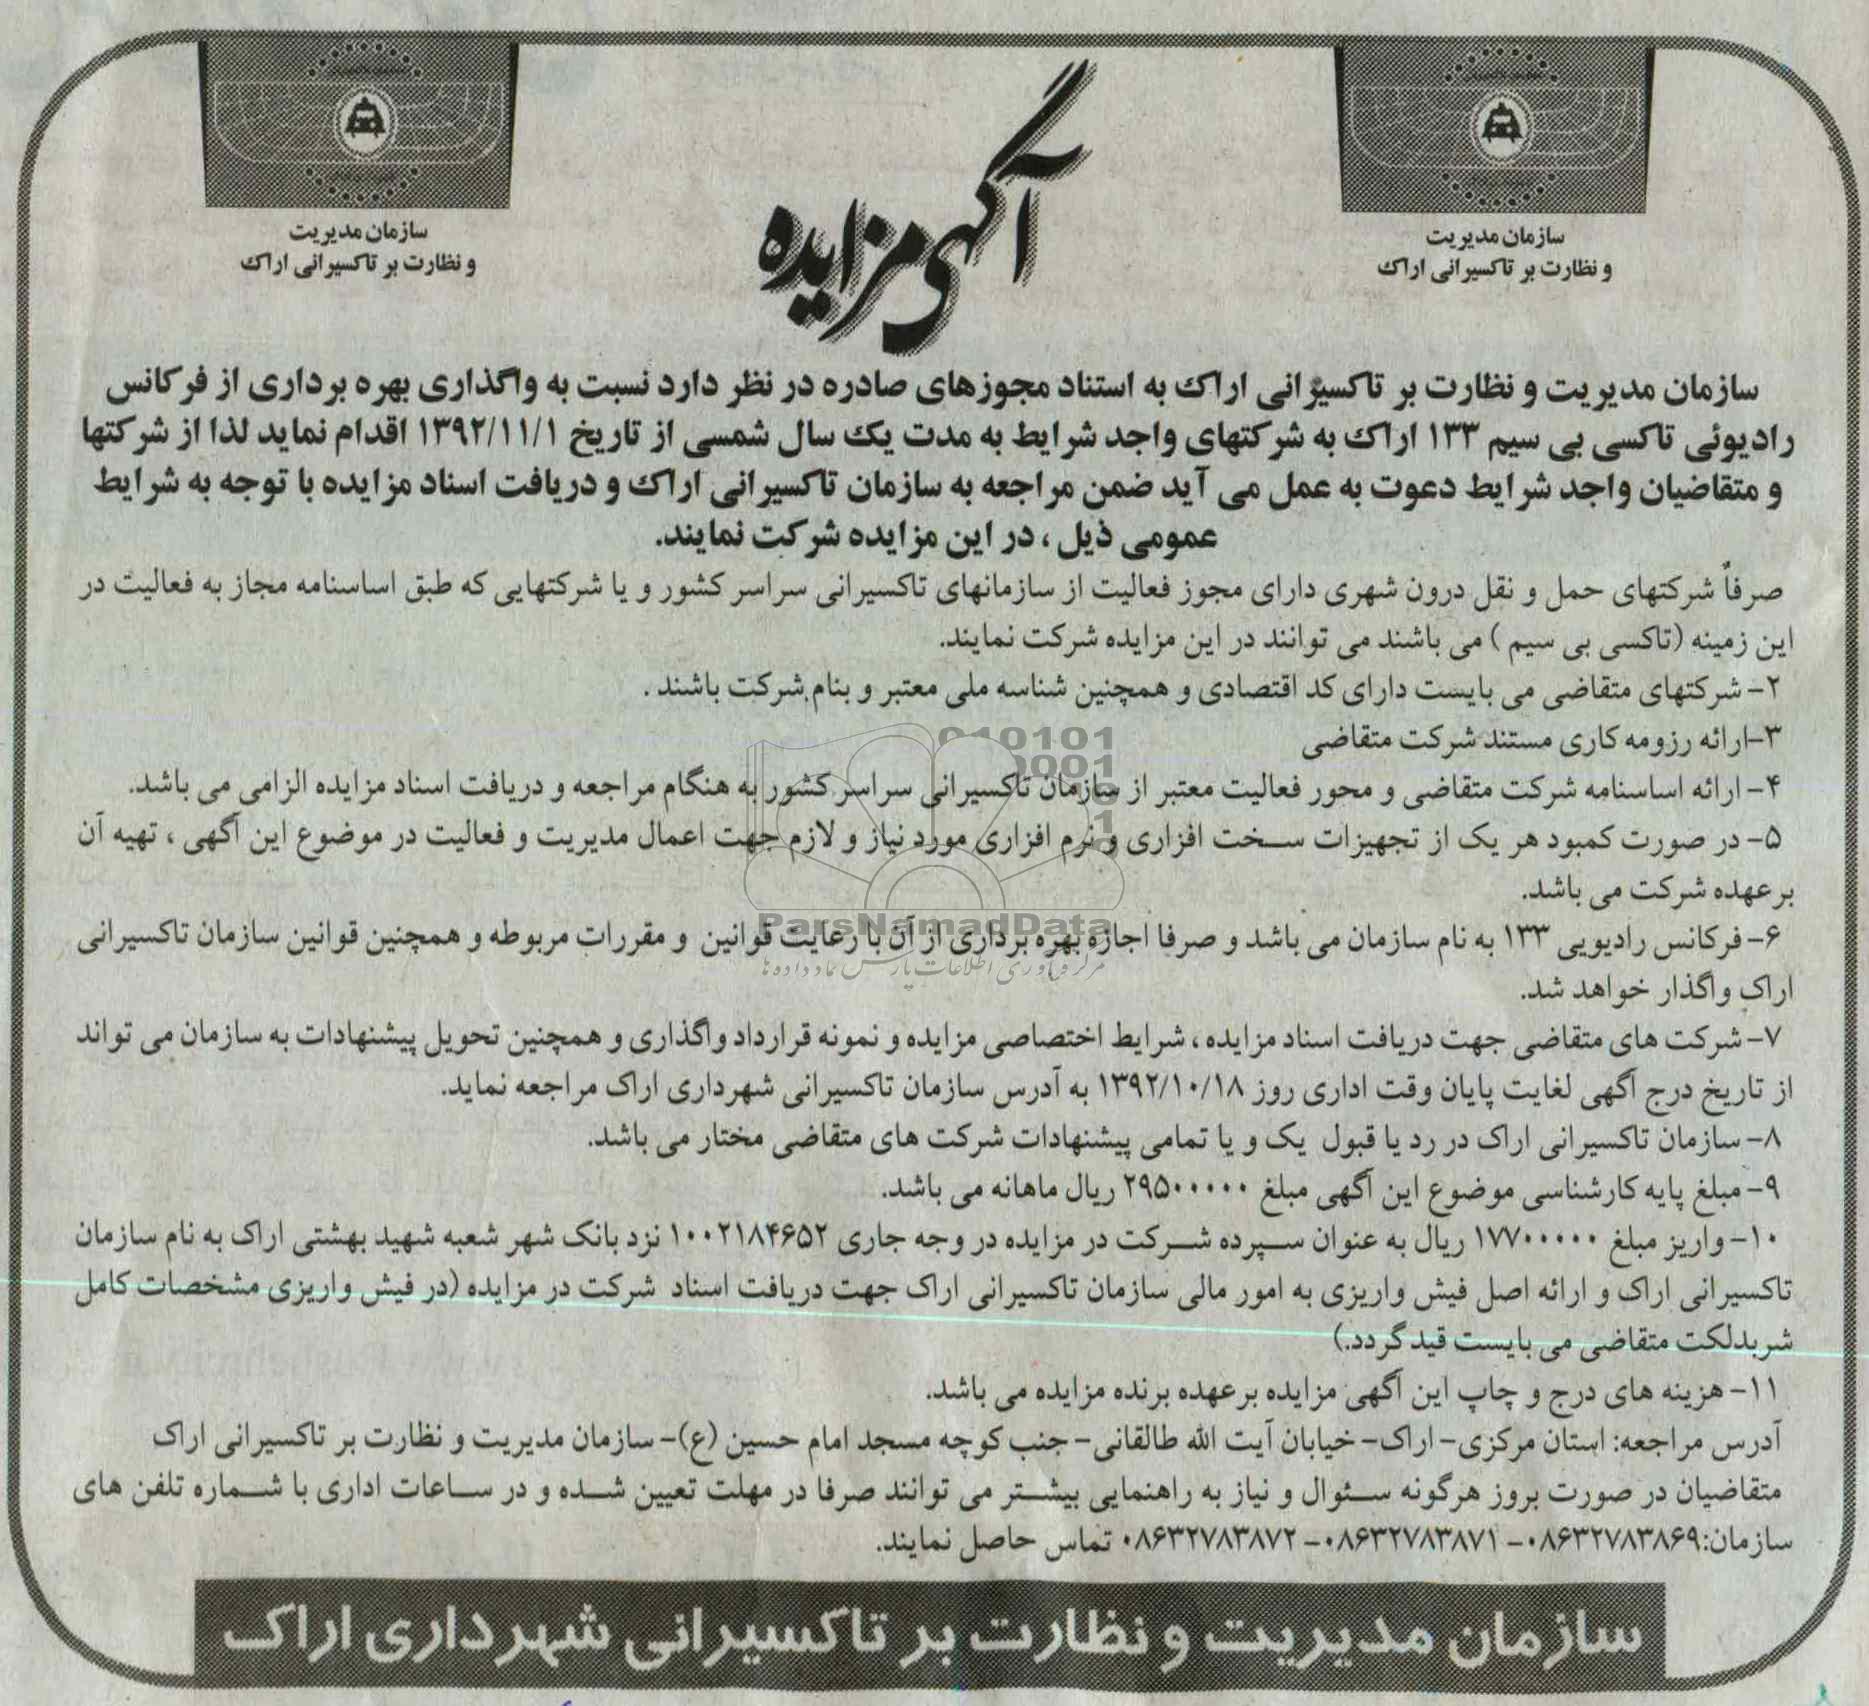 سازمان مدیریت
و نظارت بر تاکسیرانی اراک
آگهی مزایده
سازمان مدیریت
و نظارت بر تاکسیرانی اراک
سازمان مدیریت و نظارت بر تاکسیرانی اراک به استناد مجوزهای صادره در نظر دارد نسبت به واگذاری بهره برداری از فرکانس
رادیوئی تاکسی بی سیم ۱۳۳ اراک به شرکتهای واجد شرایط به مدت یک سال شمسی از تاریخ ۱۳۹۲/۱۱/۱ اقدام نماید لذا از شرکتها
و متقاضیان واجد شرایط دعوت به عمل می آید ضمن مراجعه به سازمان تاکسیرانی اراک و دریافت اسناد مزایده با توجه به شرایط
عمومی ذیل ، در این مزایده شرکت نمایند.
صرفاً شرکتهای حمل و نقل درون شهری دارای مجوز فعالیت از سازمانهای تاکسیرانی سراسر کشور و یا شرکتهایی که طبق اساسنامه مجاز به فعالیت در
این زمینه (تاکسی بی سیم ) می باشند می توانند در این مزایده شرکت نمایند.
۲- شرکتهای متقاضی می بایست دارای کد اقتصادی و همچنین شناسه ملی معتبر و بنام شرکت باشند .
۳-ارائه رزومه کاری مستند شرکت متقاضی
۴- ارائه اساسنامه شرکت متقاضی و محور فعالیت معتبر از سازمان تاکسیرانی سراسر کشور به هنگام مراجعه و دریافت اسناد مزایده الزامی می باشد.
۵- در صورت کمبود هر یک از تجهیزات سخت افزاری و نرم افزاری مورد نیاز و لازم جهت اعمال مدیریت و فعالیت در موضوع این آگهی ، تهیه آن
برعهده شرکت می باشد.
ParsNamadData
۶- فرکانس رادیویی ۱۳۳ به نام سازمان می باشد و صرفا اجازه بهره برداری از آن با رعایت قوانین و مقررات مربوطه و همچنین قوانین سازمان تاکسیرانی
مرکز فرآوری اطلاعات پارس نماد داده ها
اراک واگذار خواهد شد.
۷- شرکت های متقاضی جهت دریافت اسناد مزایده ، شرایط اختصاصی مزایده و نمونه قرارداد واگذاری و همچنین تحویل پیشنهادات به سازمان می تواند
از تاریخ درج آگهی لغایت پایان وقت اداری روز ۱۳۹۲/۱۰/۱۸ به آدرس سازمان تاکسیرانی شهرداری اراک مراجعه نماید.
۸- سازمان تاکسیرانی اراک در رد یا قبول یک و یا تمامی پیشنهادات شرکت های متقاضی مختار می باشد.
۹- مبلغ پایه کارشناسی موضوع این آگهی مبلغ ۲۹۵۰۰۰۰۰ ریال ماهانه می باشد.
۱۰- واریز مبلغ ۱۷۷۰۰۰۰۰ ریال به عنوان سپرده شرکت در مزایده در وجه جاری ۱۰۰۲۱۸۴۶۵۲ نزد بانک شهر شعبه شهید بهشتی اراک به نام سازمان
تاکسیرانی اراک و ارائه اصل فیش واریزی به امور مالی سازمان تاکسیرانی اراک جهت دریافت اسناد شرکت در مزایده (در فیش واریزی مشخصات کامل
شربدلکت متقاضی می بایست قید گردد.)
۱۱- هزینه های درج و چاپ این آگهی مزایده برعهده برنده مزایده می باشد.
آدرس مراجعه: استان مرکزی- اراک- خیابان آیت الله طالقانی- جنب کوچه مسجد امام حسین (ع)- سازمان مدیریت و نظارت بر تاکسیرانی اراک
متقاضیان در صورت بروز هرگونه سئوال و نیاز به راهنمایی بیشتر می توانند صرفا در مهلت تعیین شده و در ساعات اداری با شماره تلفن های
سازمان:۰۸۶۳۲۷۸۳۸۶۹- ۰۸۶۳۲۷۸۳۸۷۱- ۰۸۶۳۲۷۸۳۸۷۲ تماس حاصل نمایند.
سازمان مدیریت و نظارت بر تاکسیرانی شهرداری اراک